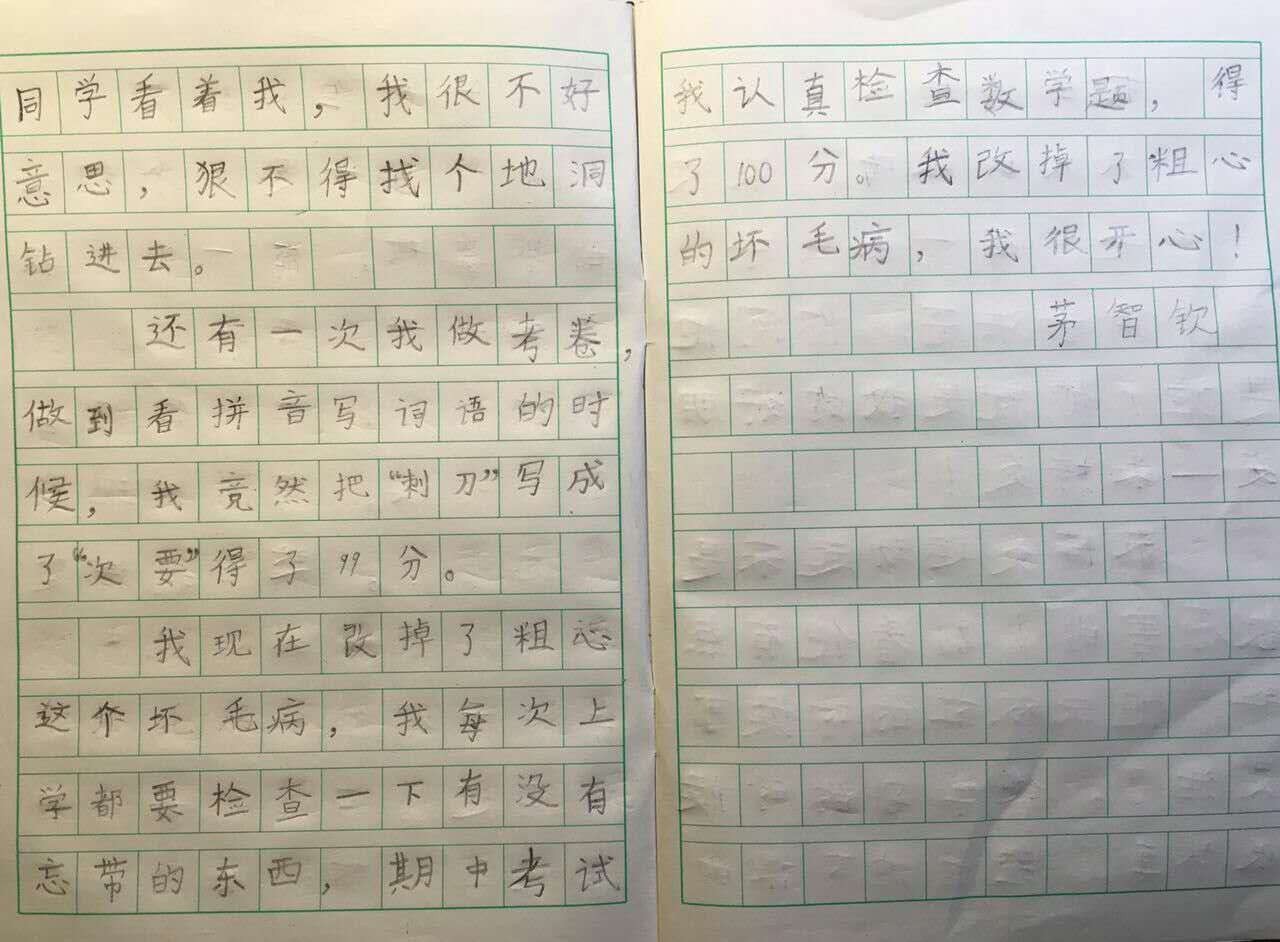 同学看着我，我很不好
意思，狠不得找个地洞
钻进去。
还有一次我做考卷，
做到看拼音写词语的时
候，我竟然把“刺刀”写成
了“次要”得了99分。
我现在改掉了粗心
这个坏毛病，我每次上
学都要检查一下有没有
忘带的东西，期中考试
我认真检查数学题，得
了100分。我改掉了粗心
的坏毛病，我很开心！
茅智钦